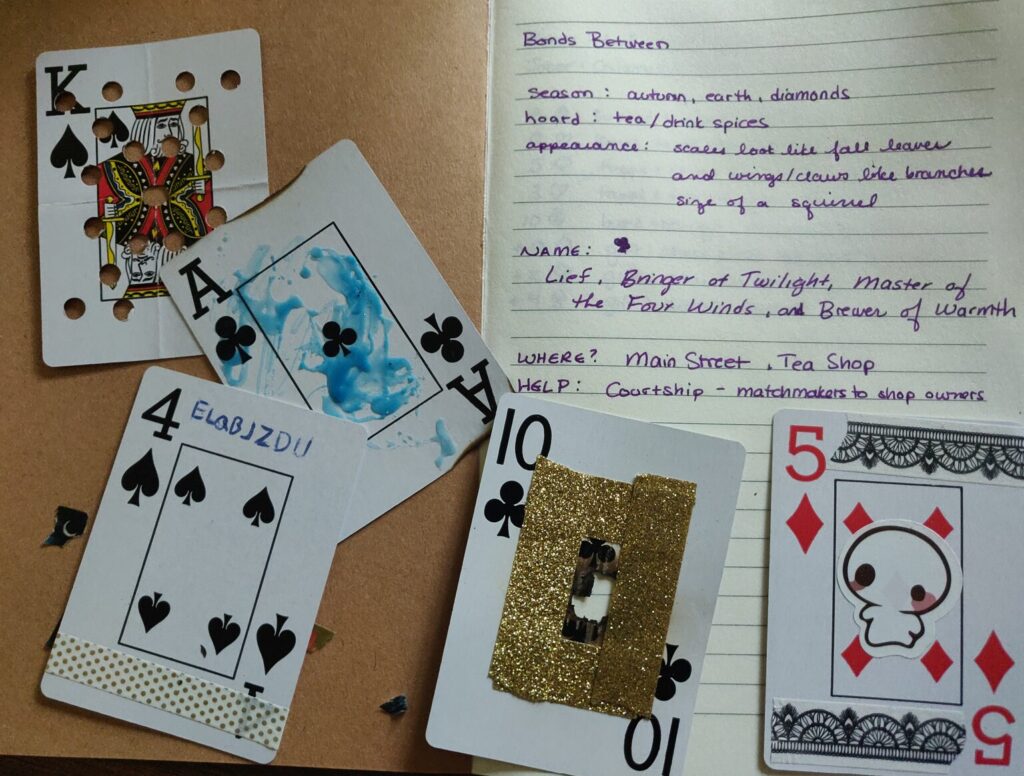 K
A
A
4
10
10
5
5
Bonds Between
season : autumn, earth, diamonds
hoard : tea/drink spices
appearance : scales look like fall leaves
and wings/claws like branches
size of a squirrel
NAME:
Lief, Bringer of Twilight, Master of
the Four Winds, and Brewer of Warmth
WHERE? Main Street, Tea Shop
HELP: Courtship - matchmakers to shop owners